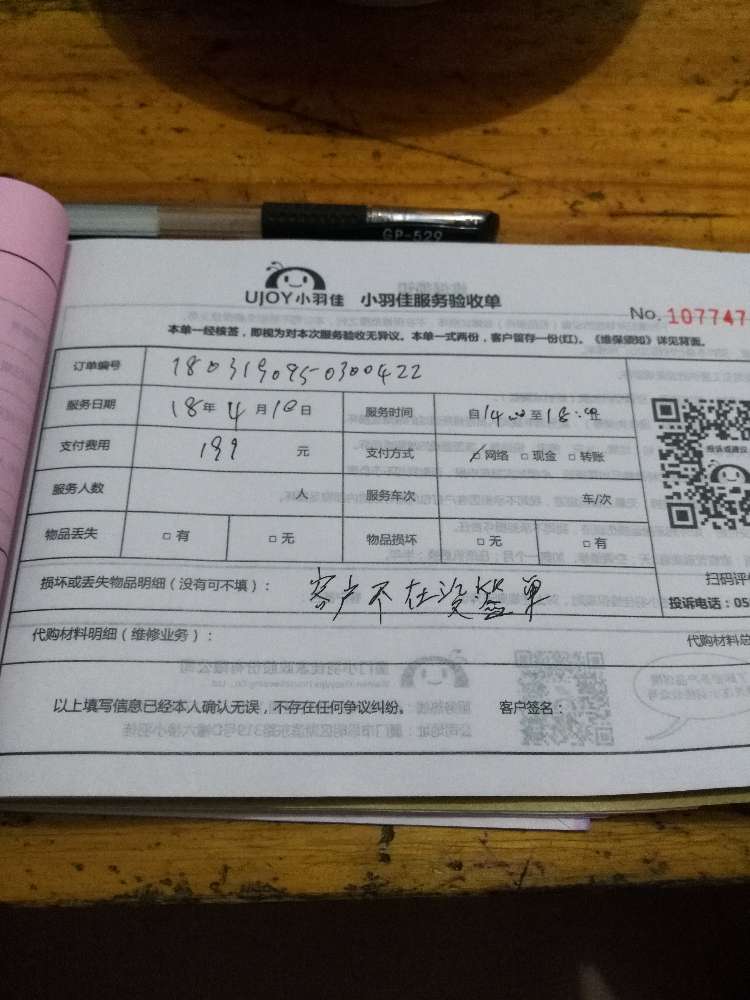 GP-529
UJOY小羽佳 小羽佳服务验收单
No. 107747
本单一经核签，即视为对本次服务验收无异议。本单一式两份，客户留存一份(红)。《维保须知》详见背面。
订单编号 1803190950300422
服务日期 18年 4月10日 服务时间 自14:00至18:00止
支付费用 199 元 支付方式 ☑网络 □现金 □转账
服务人数 人 服务车次 车/次
物品丢失 □有 □无 物品损坏 □无 □有
投诉或建议
损坏或丢失物品明细（没有可不填）： 客户不在没签单
扫码评
投诉电话：05
代购材料明细（维修业务）： 代购材料总
以上填写信息已经本人确认无误，不存在任何争议纠纷。 客户签名：